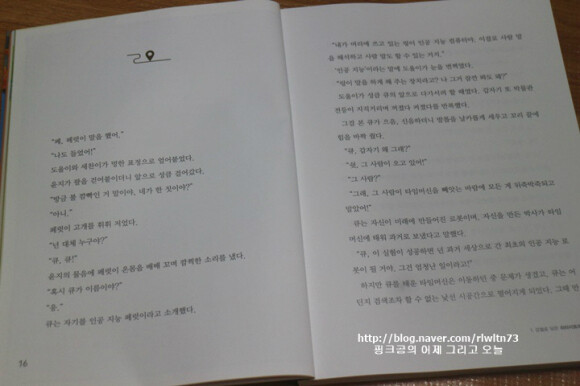 "왜, 헤럿이 말을 했어."
"나도 들었어!"
도율이와 세찬이가 멍한 표정으로 얼어붙었다.
윤지가 팔을 걷어붙이더니 앞으로 성큼 걸어갔다.
"방금 불 깜빡인 거 말이야, 네가 한 짓이야?"
"아니."
헤럿이 고개를 휘휘 저었다.
"넌 대체 누구야?"
"큐, 큐!"
윤지의 물음에 헤럿이 온몸을 배배 꼬며 괴팍한 소리를 냈다.
"혹시 큐가 이름이야?"
"응."
큐는 자기를 인공 지능 헤럿이라고 소개했다.
16
"내가 머리에 쓰고 있는 링이 인공 지능 컴퓨터야. 이걸로 사람 말
을 해석하고 사람 말도 할 수 있는 거지."
'인공 지능'이라는 말에 도율이가 눈을 번쩍였다.
"링이 말을 하게 해 주는 장치라고? 나 그거 한번 써도 돼?"
도율이가 성큼 큐의 앞으로 다가서려 할 때였다. 갑자기 또 박물관
전등이 지지직거리며 켜졌다 꺼졌다를 반복했다.
그걸 본 큐가 으음, 신음하더니 발톱을 날카롭게 세우고 꼬리 끝에
힘을 바짝 줬다.
"큐, 갑자기 왜 그래?"
"쉿, 그 사람이 오고 있어!"
"그 사람?"
"그래, 그 사람이 타임머신을 빼앗는 바람에 모든 게 뒤죽박죽되고
말았어!"
큐는 자신이 미래에 만들어진 로봇이며, 자신을 만든 박사가 타임
머신에 태워 과거로 보냈다고 말했다.
"큐, 이 실험이 성공하면 넌 과거 세상으로 간 최초의 인공 지능 로
봇이 될 거야. 그건 엄청난 일이라고!"
하지만 큐를 태운 타임머신은 이동하던 중 문제가 생겼고, 큐는 어
딘지 검색조차 할 수 없는 낯선 시공간으로 떨어지게 되었다. 그때 만
http://blog.naver.com/rlwltn73
핑크곰의 어제 그리고 오늘